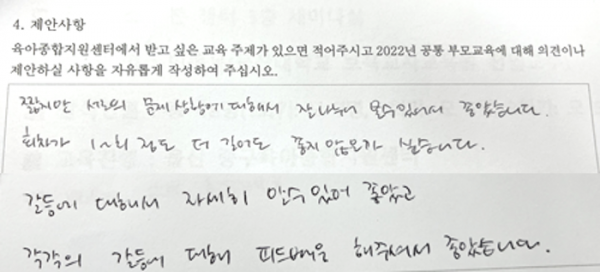 4. 제안사항
육아종합지원센터에서 받고 싶은 교육 주제가 있으면 적어주시고 2022년 공통 부모교육에 대해 의견이나
제안하실 사항을 자유롭게 작성하여 주십시오.
짧지만 서로의 문제상황에 대해서 잘 나눠볼 수 있어서 좋았습니다.
회차가 1~2회 정도 더 길어도 좋지 않을까 싶습니다.
갈등에 대해서 자세히 알수 있어 좋았고
각각의 갈등에 대해 피드백을 해주셔서 좋았습니다.